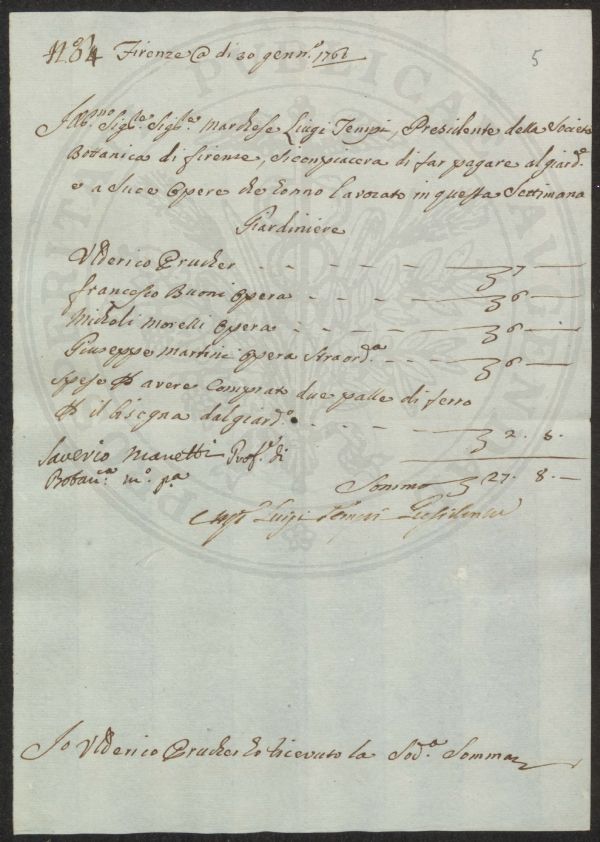 N.º 4 Firenze @ di 30 genn.º 1762
5
Ill.mo Sig.re Sig.re Marchese Luigi Tempi, Presidente della Società
Botanica di firenze, si conpiacera di far pagare al giard.e
e a Suoe Opere che honno lavorato in questa Settimana
Giardiniere
Ulderico Prucker 7
francesco Buoni Opera 6
Micholi Morelli Opera 6
Giuseppe Martini Opera Straord.a 6
Spese avere Comprato due palle di ferro
il bisogna dal giard.º 2. 8.
Saverio Manetti Prof.e di
Botan.ca m.º p.a
Somma 27. 8.
Luigi Tempi Presidente
Io Ulderico Prucker ho ricevuto la Sod.a Somma